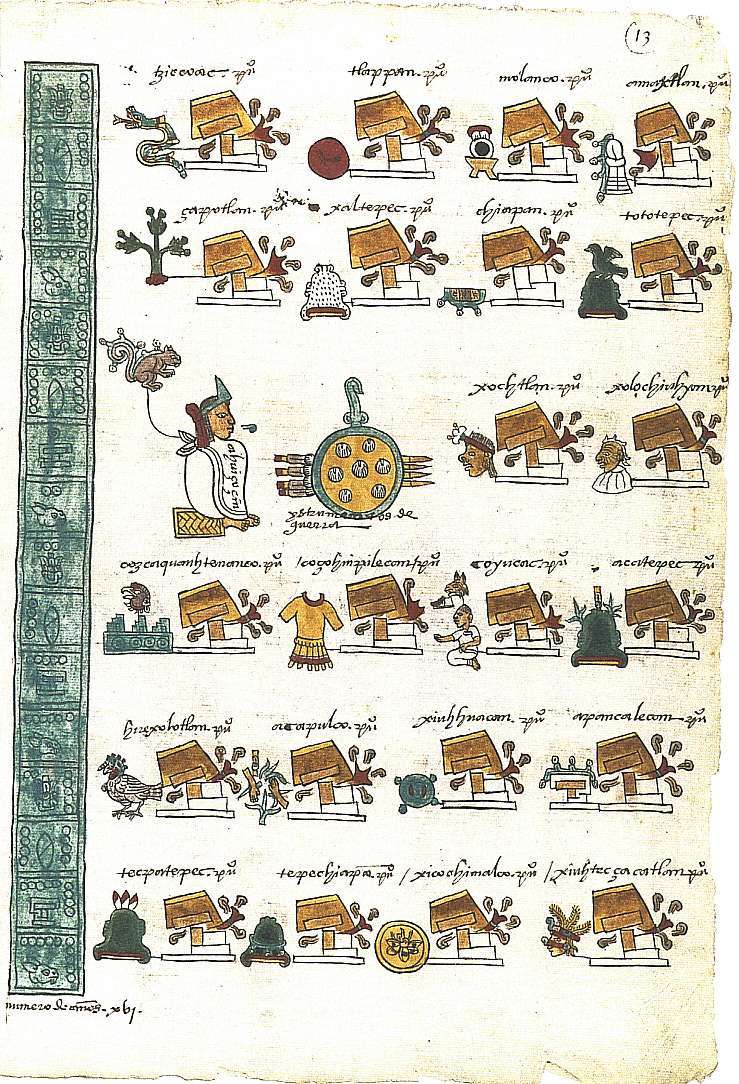 13
tziccoac. puº
tlappan. puº
molanco. puº
amaxtlan. puº
çapotlan. puº
xaltepec. puº
chiapan. puº
tototepec. puº
xochtlan. puº
xolochiuhyan. puº
ahuiçoçin
de
guerra
cozcaquauhtenanco. puº
/coçohuipilecan. puº
coyucac. puº
acatepec. puº
huexolotlan. puº
acapulco. puº
xiuhhuacan. puº
apancalecan puº
tecpatepec. puº
tepechiapā. puº
/xicochimalco. puº
/xiuhteçacatlan. puº
numero de años. xvi.